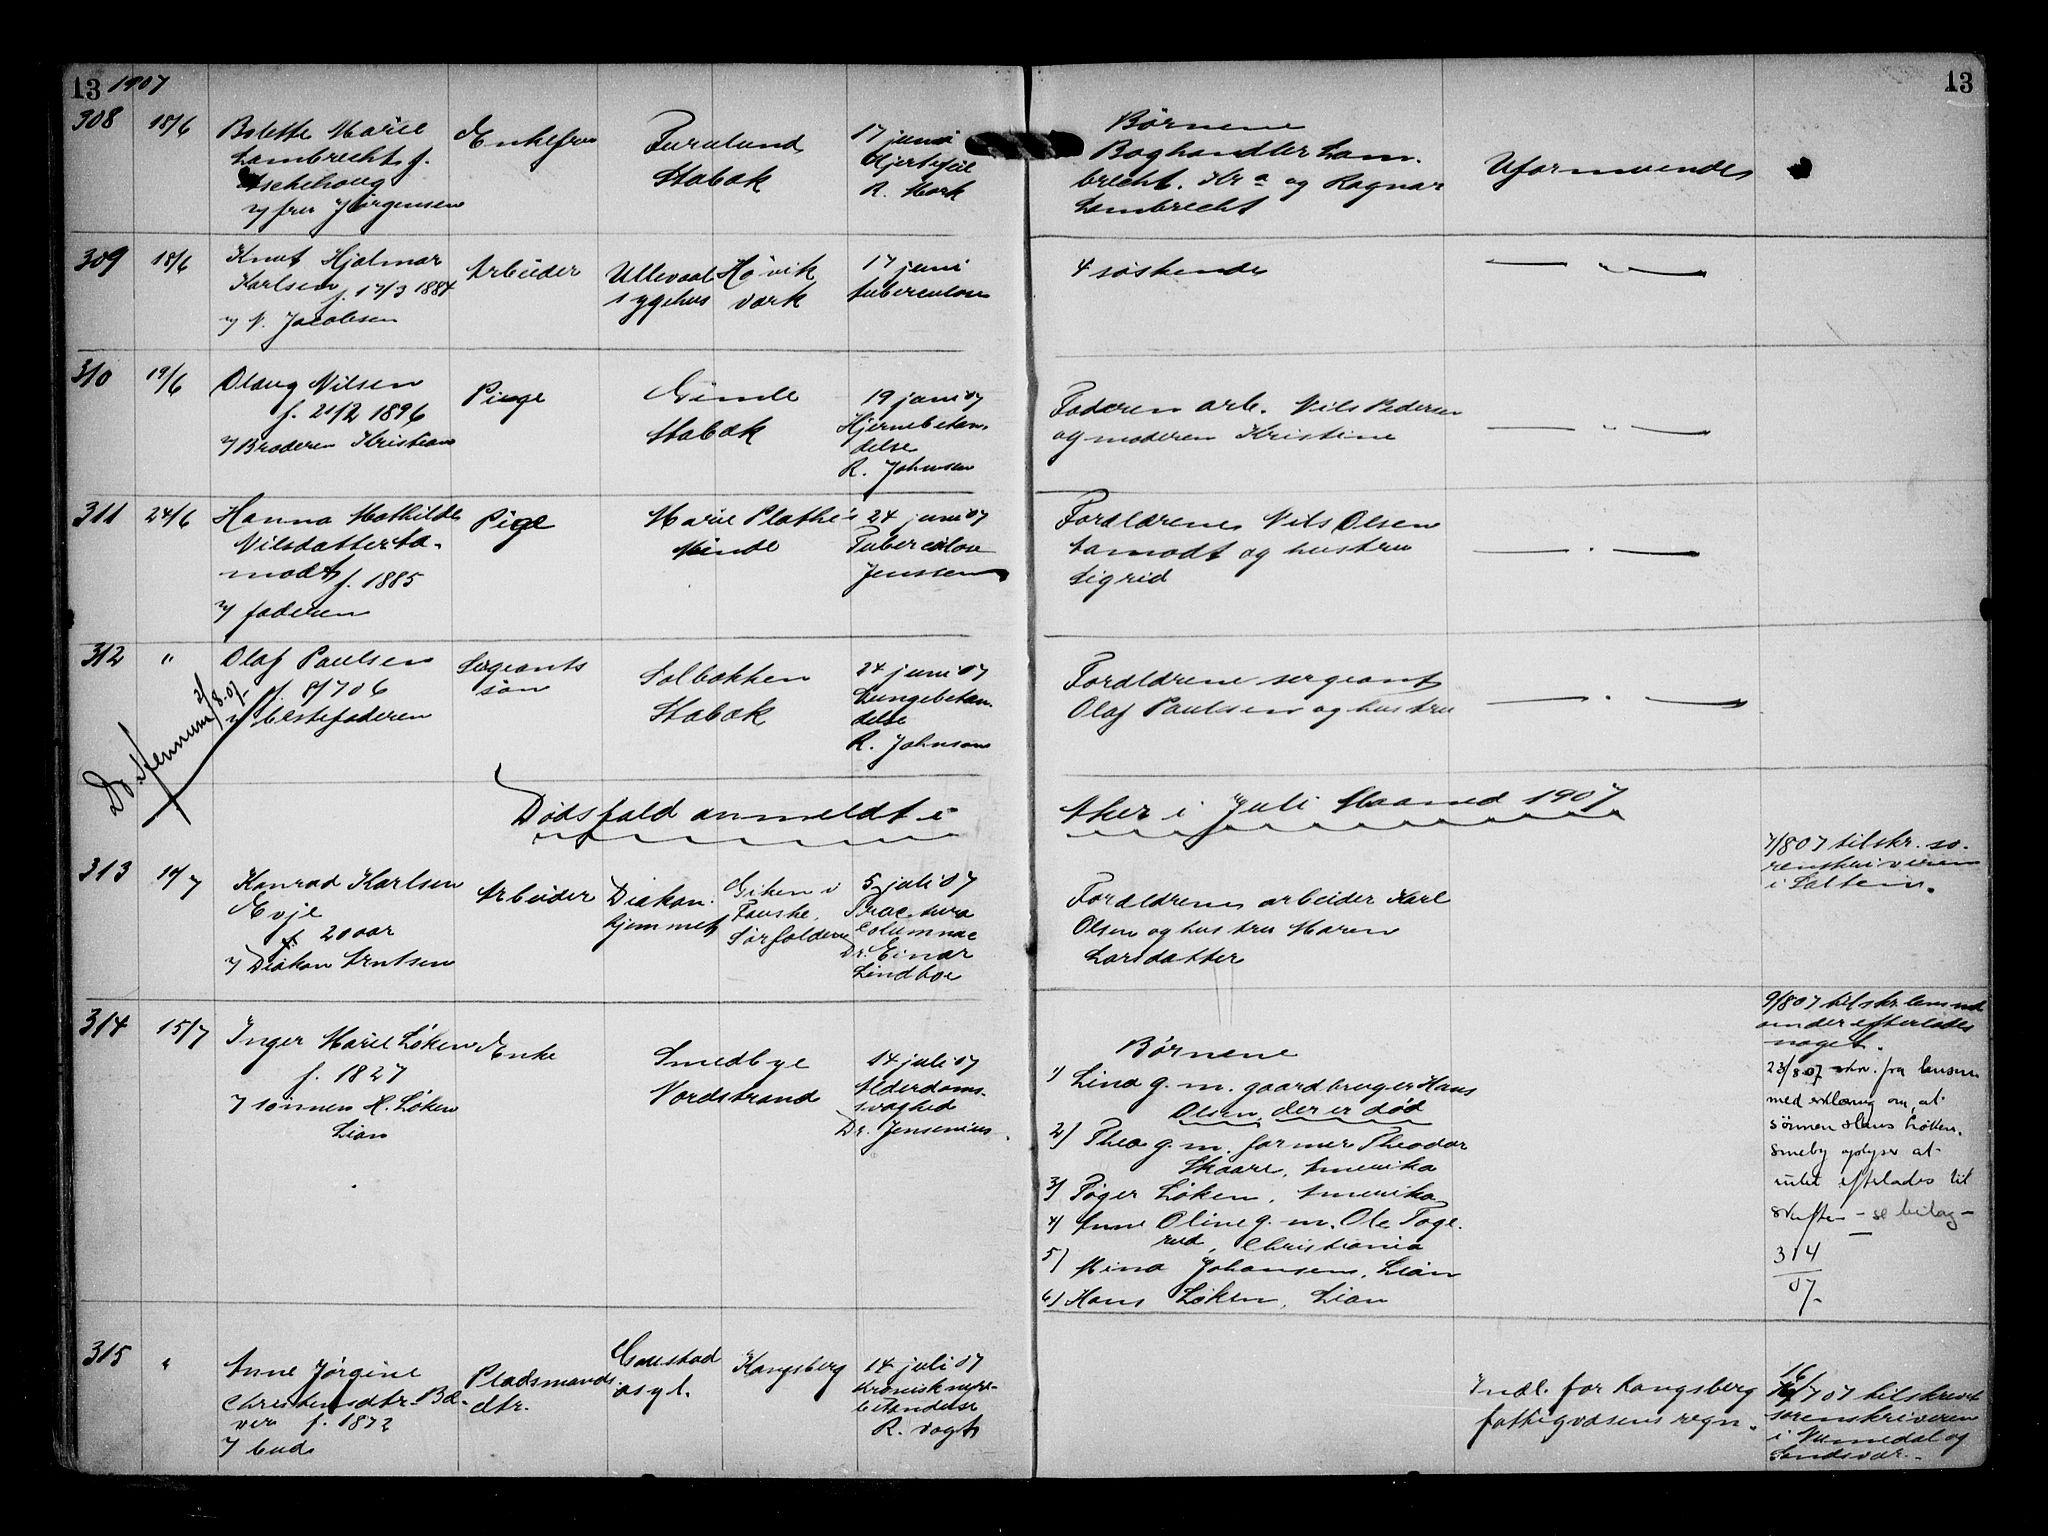 13 1907
13
308 18/6 Bolette Marie
Lambrecht f.
Aschehoug
v/ fru Jørgensen
Enkefru
Furulund
Stabæk
17 juni
Hjertefeil
R. Mork
Børnene
Boghandler Lam-
brecht. Kr a og Ragnar
Lambrecht
Uformuende
309 18/6 Knut Hjalmar
Karlsen f. 17/3 1884
v/ N. Jacobsen
Arbeider
Ullevaal
sygehus
Høvik
værk
17 juni
tuberculose
4 søskende
— " —
310 19/6 Olaug Nilsen
f. 21/2 1896
v/ Broderen Kristian
Pige
Gimle
Stabæk
19 juni 07
Hjernebetæn-
delse
R. Johnsen
Faderen arb. Nils Pedersen
og moderen Kristine
— " —
311 24/6 Hanna Mathilde
Nilsdatter Aa-
modt f. 1885
v/ faderen
Pige
Marie Plathe's
Minde
24 juni 07
Tuberculose
Jenssen
Forældrene Nils Olsen
Aamodt og hustru
Sigrid
— " —
312 " Olaf Paulsen
f. 8/7 06
v/ bestefaderen
Sergeants
søn
Solbakken
Stabæk
24 juni 07
Lungebetæn-
delse
R. Johnsen
Forældrene sergeant
Olaf Paulsen og hustru
— " —
2/8-07-
Dødsfald anmeldt i
Aker i Juli Maaned 1907
313 14/7 Konrad Karlsen
Evje
20 aar
v/ Diakon Arntsen
Arbeider
Diakon.
hjemmet
Giken i
Fauske,
Sørfolden
5 juli 07
Fractura
columnae
Dr. Einar
Lindboe
Forældrene arbeider Karl
Olsen og hustru Maren
Larsdatter
7/8 07 tilskr. so-
renskriveren
i Salten.
314 15/7 Inger Marie Løken
f. 1827
v/ sønnen H. Løken
Lian
Enke
Smedbye
Nordstrand
14 juli 07
Alderdoms-
svaghed
Dr. Jensenius
Børnene
1) Lina g. m. gaardbruger Hans
Olsen, der er død
2) Thea g. m. farmer Theodor
Skaare, Amerika
3) Tøger Løken, Amerika
4) Anne Oline g. m. Ole Toge-
rud, Christiania
5) Mina Johansen, Lian
6) Hans Løken, Lian
9/8 07 tilskr. lensmd
om der efterlades
noget.
23/8 07 skr. fra lensm
med erklæring om, at
sønnen Hans Løken,
Smeby oplyser at
intet efterlades til
skifte - se bilag -
314
07-
315 " Anne Jørgine
Christensdtr. Bæ-
ver f. 1872
v/ bud
Pladsmands
dtr.
Gaustad
asyl.
Kongsberg
14 juli 07
Kronisk nyre-
betændelse
R. Vogt
Indl. for Kongsberg
fattigvæsens regn.
16/7 07 tilskrevet
sorenskriveren
i Numedal og
Sandsvær.